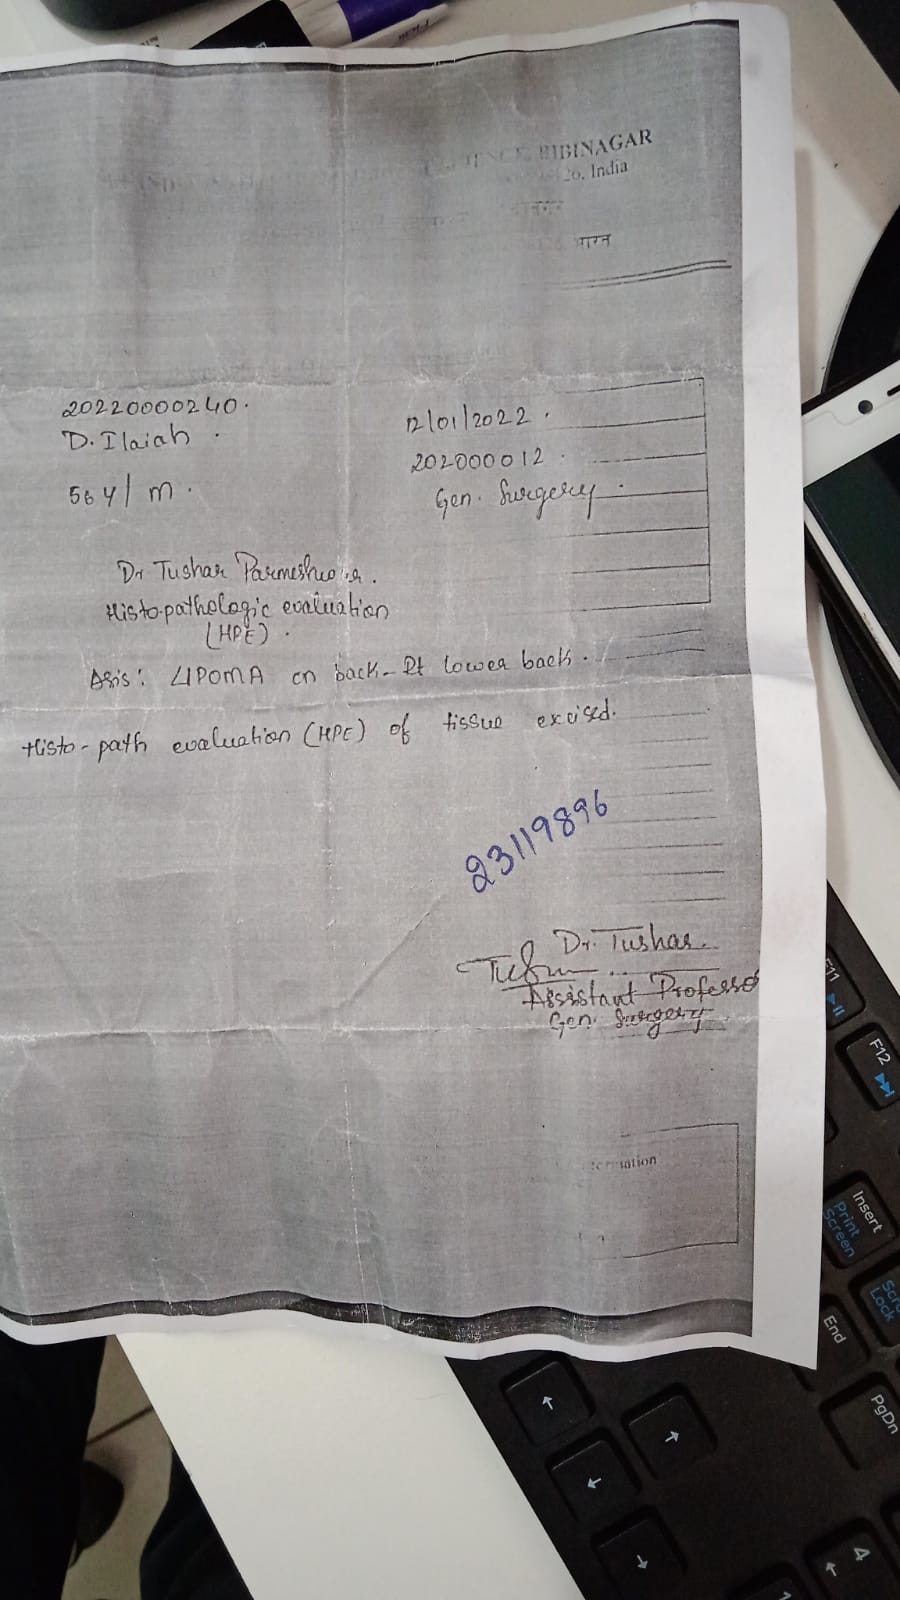 BIBINAGAR
India
भारत
20220000240.
D. Ilaiah.
56 Y/M.
12/01/2022.
202000012.
Gen. Surgery.
Dr Tushar
Histopathologic evaluation
(HPE).
LIPOMA on back - Rt lower back.
Histo-path evaluation (HPE) of tissue excised.
23119896
Dr. Tushar.
Assistant Professo
Gen. Surgery.
F11
F12
Insert
Print
Screen
Lock
End
PgDn
4